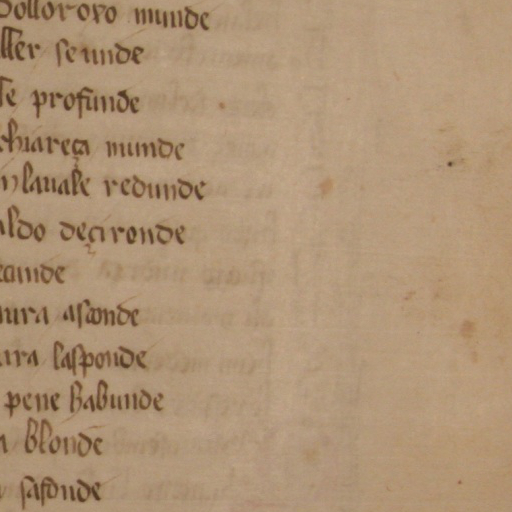 dolloroxo munde
ller seunde
te profunde
chiareça munde
n lauale redunde
aldo deçironde
ecunde
aura asconde
ara lasponde
pene habunde
a blonde
safonde